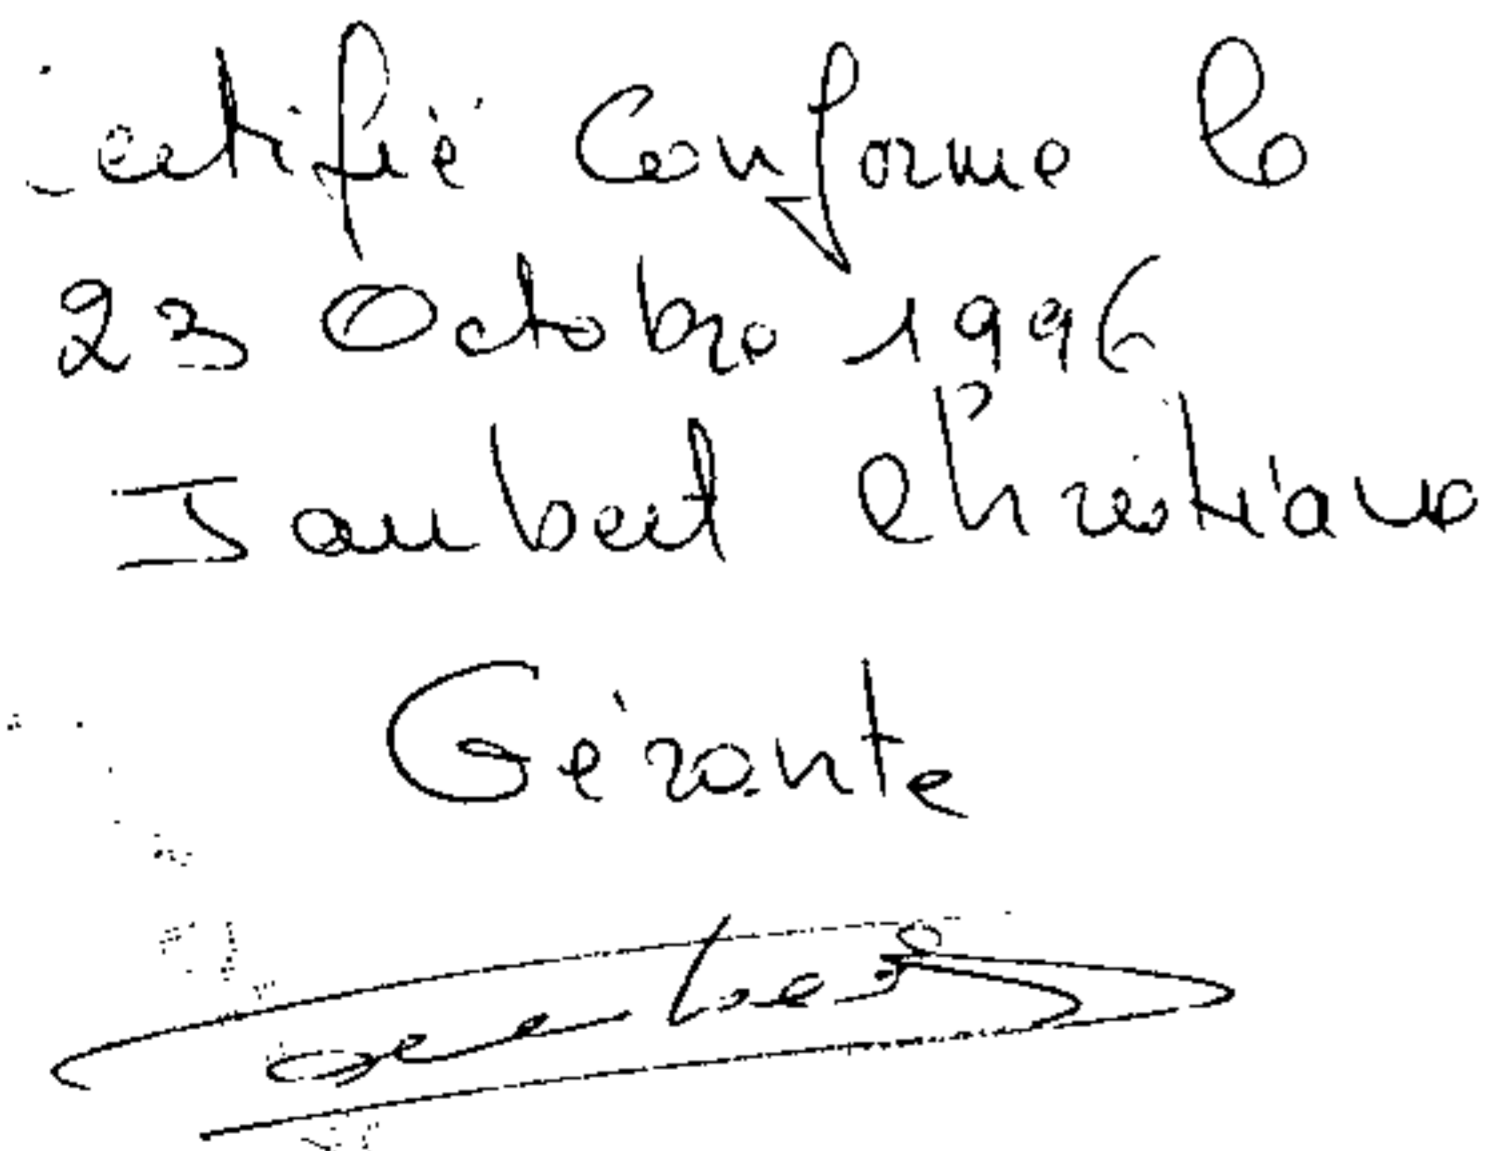 Certifié Conforme le
23 Octobre 1996
Jaubert Christiane
Gérante
Jaubert